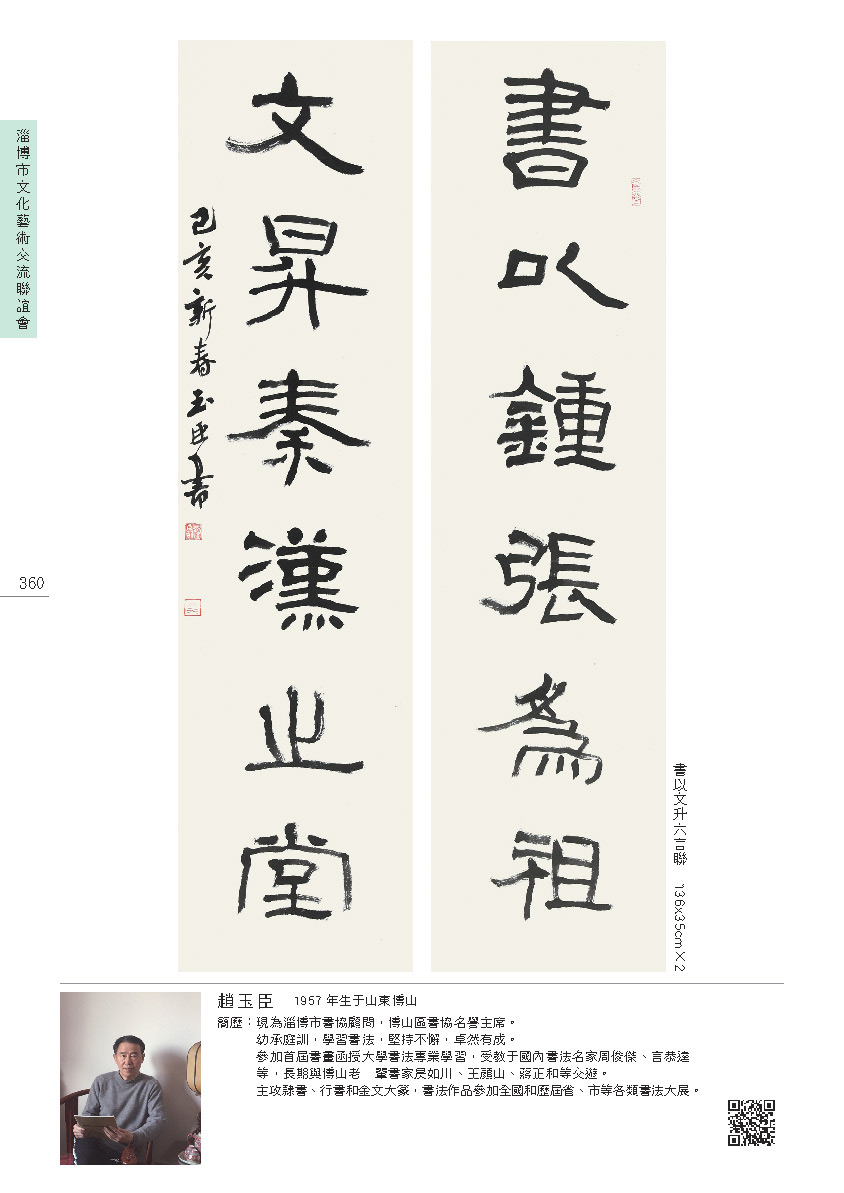 淄博市文化藝術交流聯誼會
書以鍾張為祖
文昇秦漢之堂
己亥新春玉臣書
360
書以文升六言聯 136x35cm×2
趙玉臣 1957 年生于山東博山
簡歷：現為淄博市書協顧問，博山區書協名譽主席。
幼承庭訓，學習書法，堅持不懈，卓然有成。
參加首屆書畫函授大學書法專業學習，受教于國內書法名家周俊傑、言恭達
等，長期與博山老 輩書家房如川、王顏山、蔣正和等交遊。
主攻隸書、行書和金文大篆，書法作品參加全國和歷屆省、市等各類書法大展。